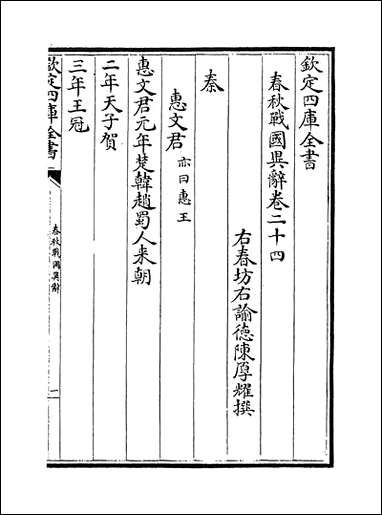 欽定四庫全書
春秋戰國異辭卷二十四
右春坊右諭德陳厚耀撰
秦
惠文君亦曰惠王
惠文君元年楚韓趙蜀人来朝
二年天子賀
三年王冠
欽定四庫全書
春秋戰國異辭
一